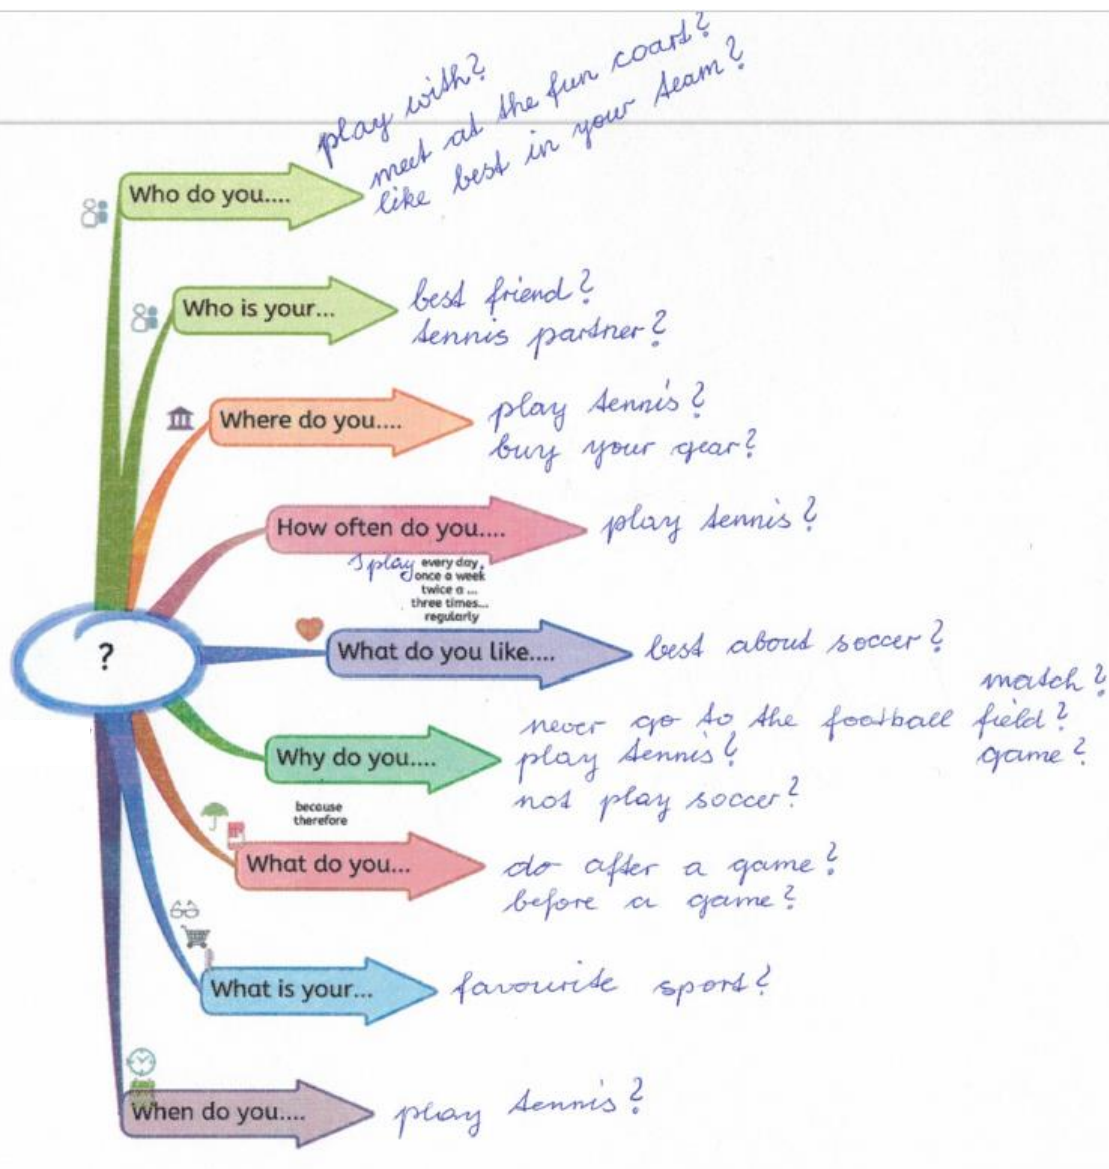 play with?
meet at the fun coart?
like best in your team?
Who do you....
Who is your...
best friend?
tennis partner?
Where do you....
play tennis?
buy your gear?
How often do you....
play tennis?
I play every day,
once a week
twice a ...
three times...
regularly
?
What do you like....
best about soccer?
match?
never go to the football field?
game?
Why do you....
play tennis?
not play soccer?
because
therefore
What do you...
do after a game?
before a game?
What is your...
favourite sport?
When do you....
play tennis?